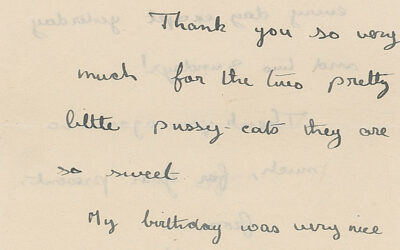 Thank you so very
much for the two pretty
little pussy-cats they are
so sweet.
My birthday was very nice